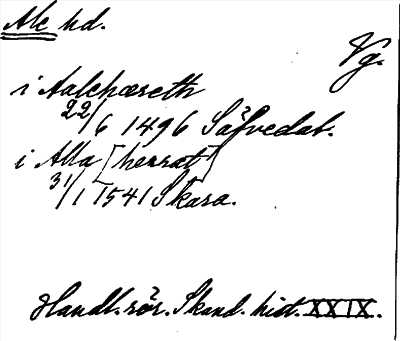 Ale hd.
Vg.
i Aalehæreth
22/6 1496 Säfvedal.
i Alla [herrat]
31/1 1541 Skara.
Handl. rör. Skand. hist. XXIX.